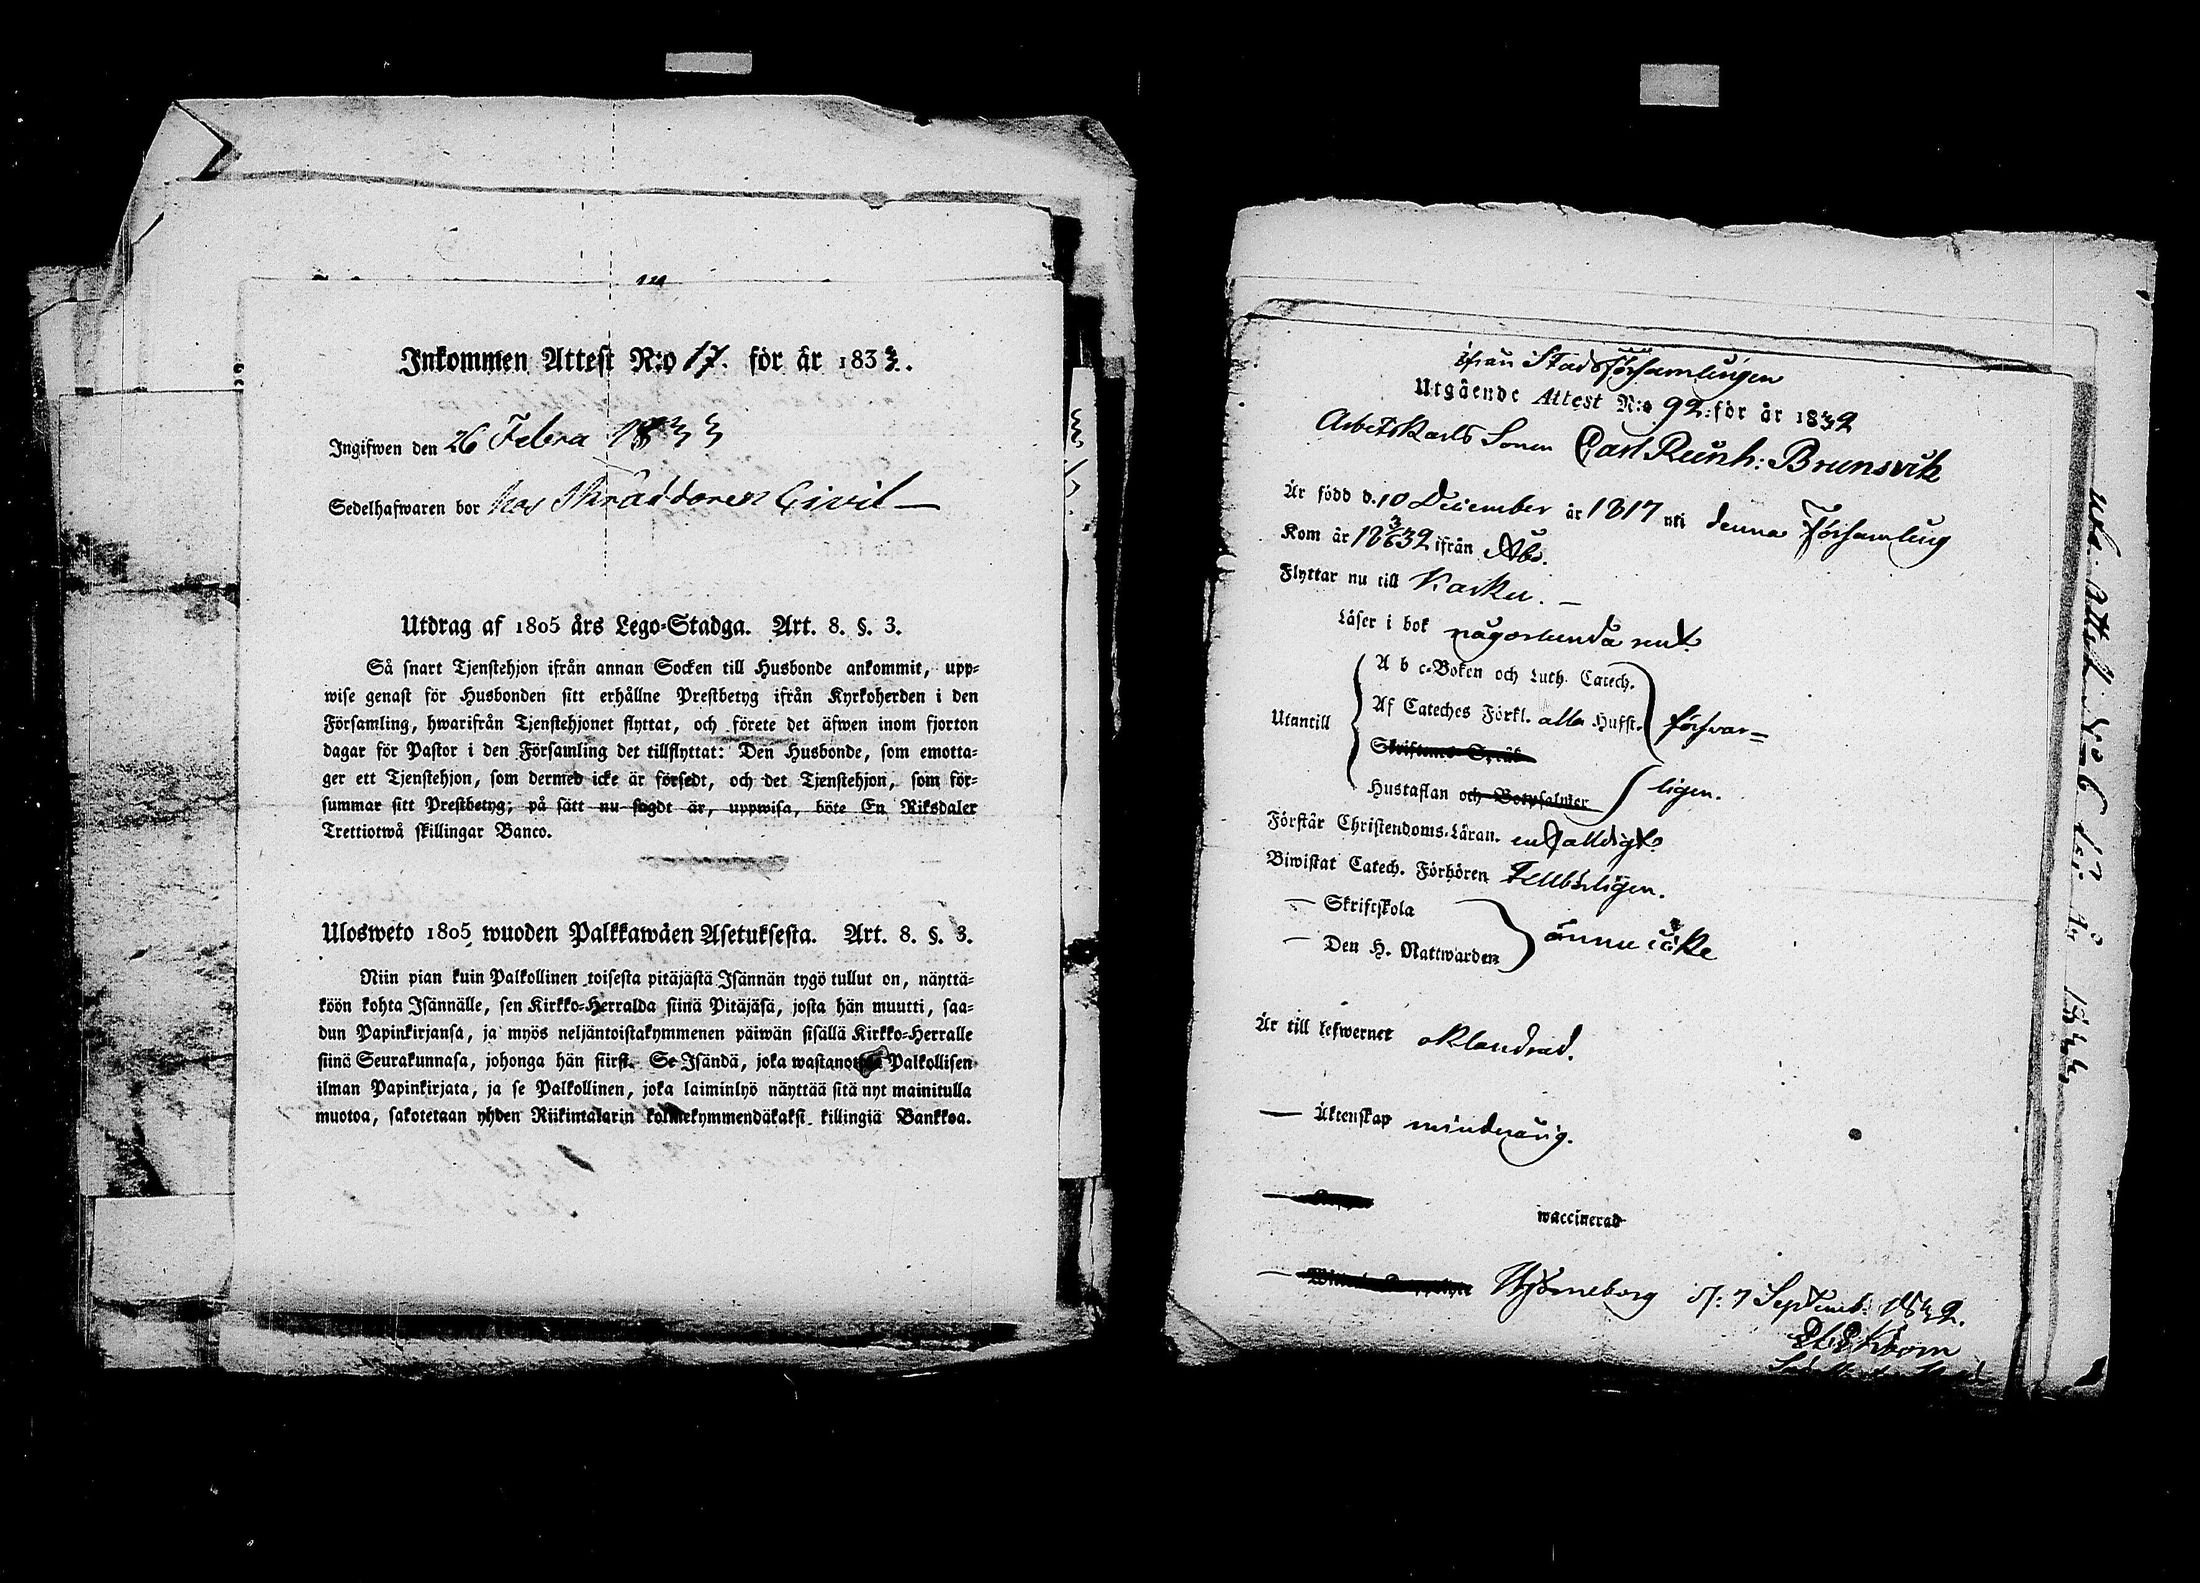 Inkommen Attest N:o 17. för år 1833.
Ingifwen den 26 Febra 1833
Sedelhafwaren bor hos Skräddaren Civil —
Utdrag af 1805 års Lego-Stadga. Art. 8. §. 3.
Så snart Tjenstehjon ifrån annan Socken till Husbonde ankommit, upp-
wise genast för Husbonden sitt erhållne Prestbetyg ifrån Kyrkoherden i den
Församling, hwarifrån Tjenstehjonet flyttat, och förete det äfwen inom fjorton
dagar för Pastor i den Församling det tillflyttat: Den Husbonde, som emotta-
ger ett Tjenstehjon, som dermed icke är försedt, och det Tjenstehjon, som för-
summar sitt Prestbetyg; på sätt nu sagdt är, uppwisa, böte En Riksdaler
Trettiotwå skillingar Banco.
Ulosweto 1805 wuoden Palkkawäen Asetuksesta. Art. 8. §. 3.
Niin pian kuin Palkollinen toisesta pitäjästä Isännän tygö tullut on, näyttä-
köön kohta Isännälle, sen Kirkko-Herralda siinä Pitäjäsä, josta hän muutti, saa-
dun Papinkirjansa, ja myös neljäntoistakymmenen päiwän sisällä Kirkko-Herralle
siinä Seurakunnasa, johonga hän siirst. Se Isändä, joka wastanottaa Palkollisen
ilman Papinkirjata, ja se Palkollinen, joka laiminlyö näyttää sitä nyt mainitulla
muotoa, sakotetaan yhden Riikintalarin kolmekymmendäkaksi killingiä Bankkoa.
ifrån Stadsförsamlingen
Utgående Attest N:o 92. för år 1832
Arbetskarls Sonen Carl Reinh: Brunsvik
Är född d. 10 December år 1817 uti denna Församling
Kom år 18 3/6 32 ifrån Åbo.
Flyttar nu till Karku. —
Läser i bok någorlunda rent.
A b c-Boken och Luth. Catech.
Utantill Af Cateches Förkl. alla Hufst. försvar=
Skriftens Språk
Hustaflan och Botpsalmer ligen.
Förstår Christendoms-Läran. enfaldigt.
Biwistat Catech. Förhören Tillbörligen.
— Skriftskola
— Den H. Nattwarden ännu icke
Är till lefwernet oklandrad.
— Äktenskap minderårig.
waccinerad
— Björneborg d. 7 Septemb: 1832.
Utg. Attest N:o 6 för år 1833.